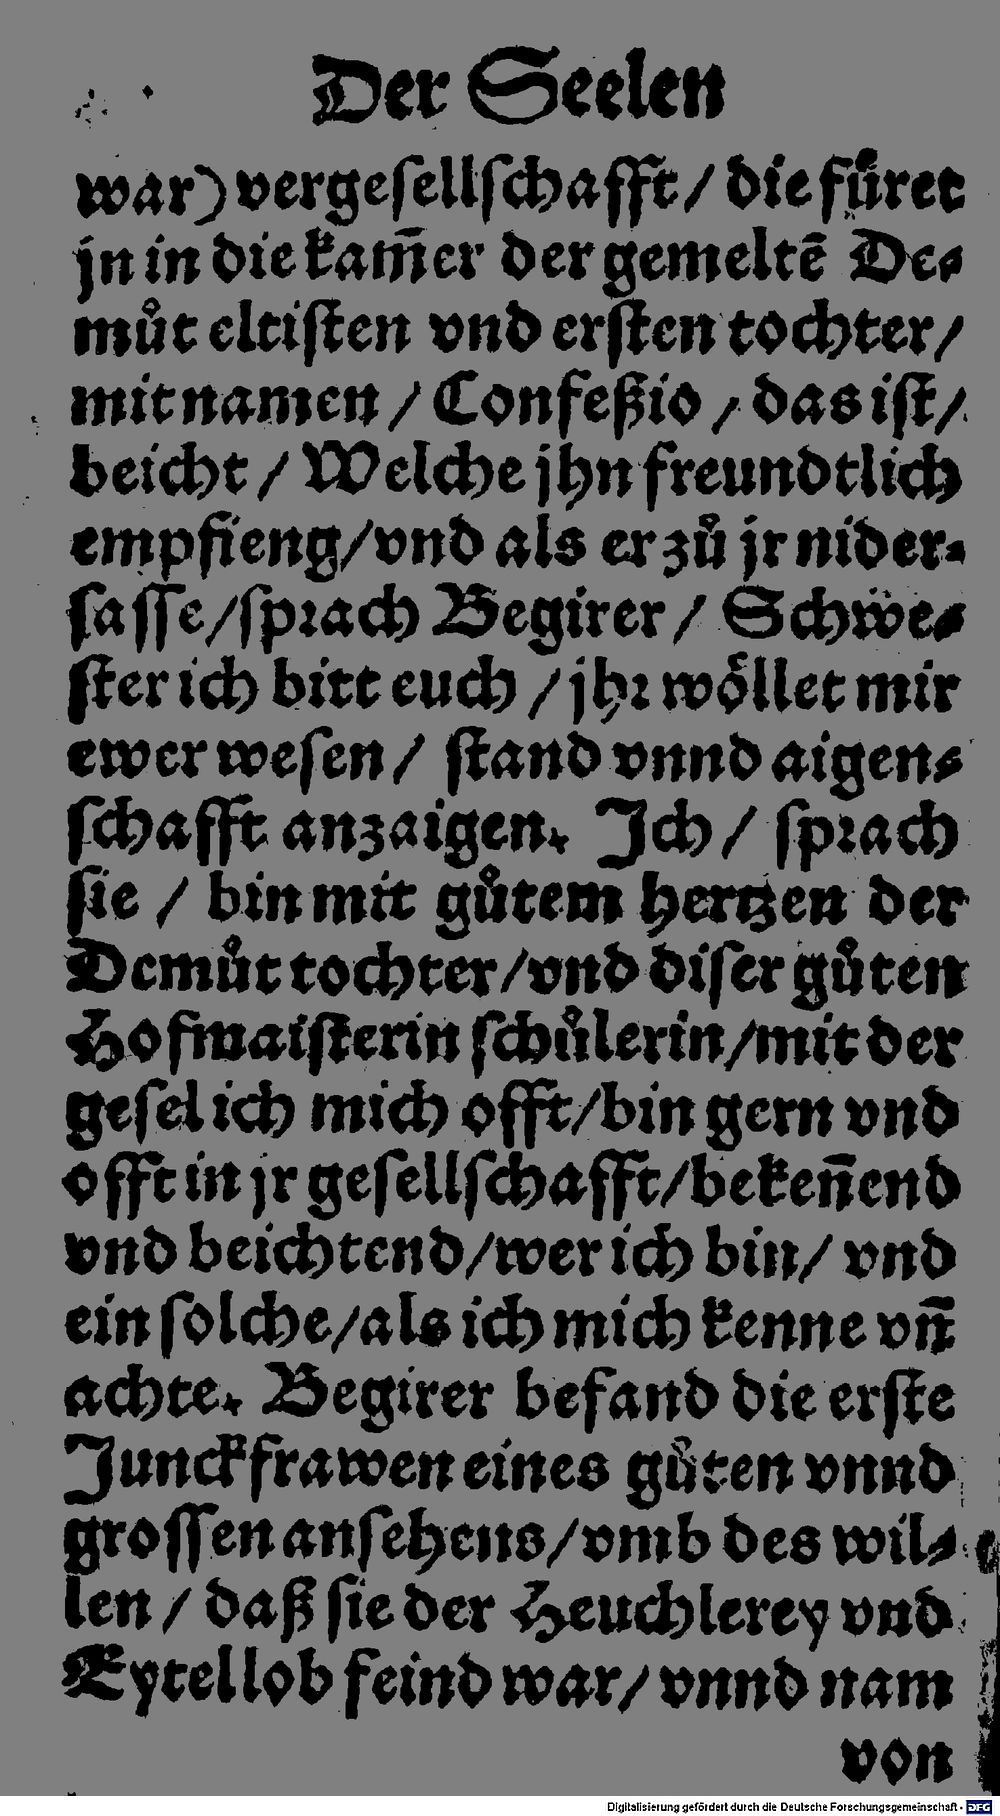 Der Seelen
war) vergeſellſchafft / die fuͤret
jn in die kam̄er der gemeltē De⸗
muͦt eltiſten vnd erſten tochter /
mit namen / Confeßio / das iſt /
beicht / Welche jhn freundtlich
empfieng / vnd als er zuͦ jr nider⸗
ſaſſe / ſpꝛach Begirer / Schwe⸗
ſter ich bitt euch / jhꝛ woͤllet mir
ewer weſen / ſtand vnnd aigen⸗
ſchafft anzaigen. Ich / ſpꝛach
ſie / bin mit guͦtem hertzen der
Demuͦt tochter / vnd diſer guͦten
Hofmaiſterin ſchuͦlerin / mit der
geſel ich mich offt / bin gern vnd
offt in jr geſellſchafft / beken̄end
vnd beichtend / wer ich bin / vnd
ein ſolche / als ich mich kenne vn̄
achte. Begirer befand die erſte
Junckfrawen eines guͦten vnnd
groſſen anſehens / vmb des wil⸗
len / daß ſie der Heuchlerey vnd
Eytellob feind war / vnnd nam
von
Digitalisierung gefördert durch die Deutsche Forschungsgemeinschaft - DFG